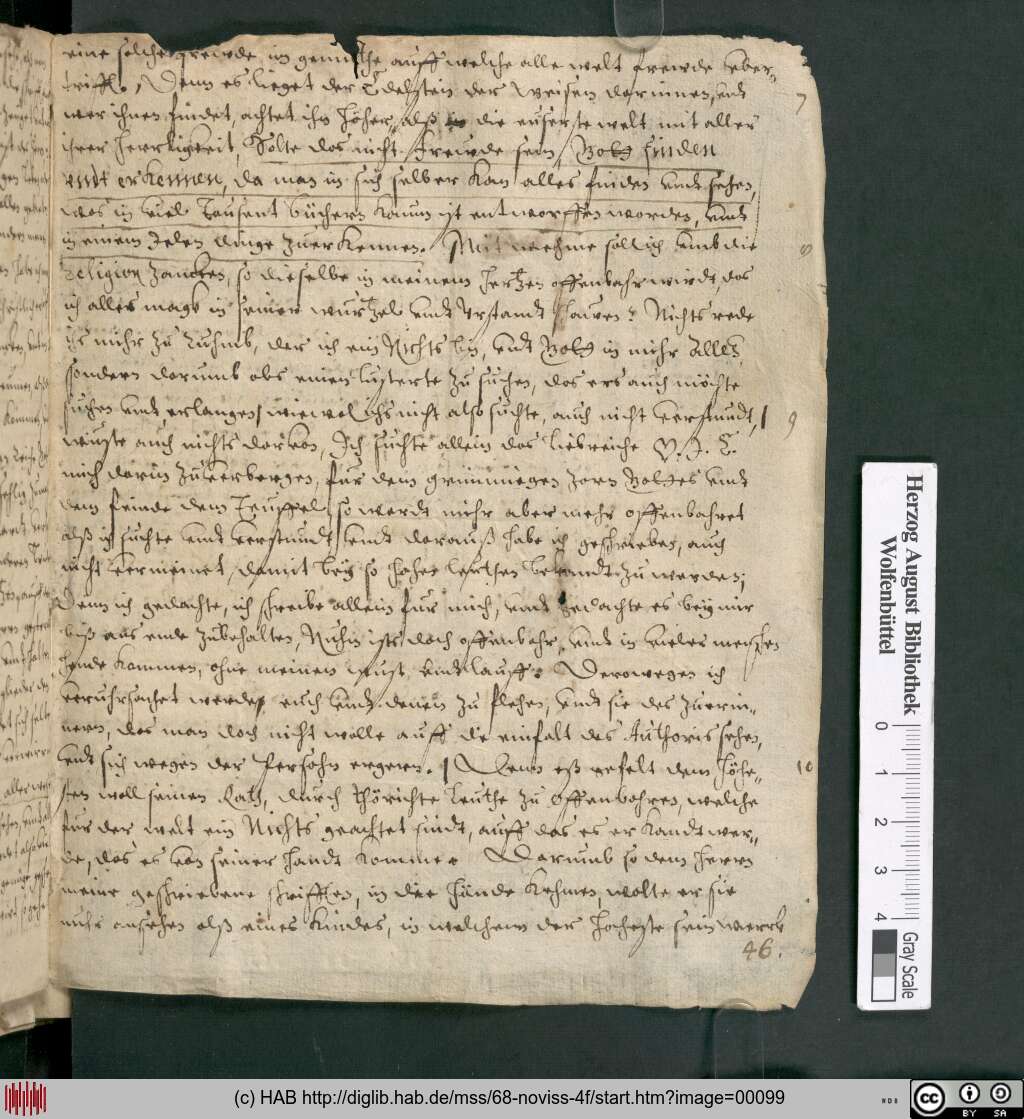 eine solche frewde im gemuthe auff welche alle welt frewde vber-
trifft, Denn es lieget der Edelstein der Weisen darinnen, vndt
wer ihnen findet, achtet ihn höher, alß die euserste welt mit aller
ihrer Herrligkeit, Solte das nicht frewde sein, Gott finden
vndt erkennen, da man in sich selber kan alles finden vndt sehen,
was in viel Tausent büchern kaum ist entworffen worden, vndt
in einem Jeden dinge zuerkennen. Mit wehme soll ich vmb die
religion zancken, so dieselbe in meinem Hertzen offenbahr wirdt, das
ich alles magk in seiner wurtzel vndt Vrstandt schawen? Nichts rede
ichs mihr zu Ruhmb, der ich ein Nichts bin, vndt Gott in mihr Alles,
sondern darumb obs einen lusterte zu suchen, das ers auch möchte
suchen vndt erlangen, wiewol ichs nicht also suchte, auch nicht verstundt,
wuste auch nichts darvon, Ich suchte allein das liebreiche
mich darin zuverbergen, für dem grimmigen zorn Gottes vndt
dem feinde dem Teuffel, so wardt mihr aber mehr offenbahret
alß ich suchte vndt verstundt, vndt darauß habe ich geschrieben, auch
nicht vermeinet, damit bey so hohen leuthen bekandt zu werden;
Denn ich gedachte, ich schreibe allein für mich, vndt gedachte es bey mir
biß ans ende zubehalten, Nuhn ists doch offenbahr, vndt in vieler menschen
hende kommen, ohne meinen lauff. Derowegen ich
veruhrsachet werde, euch vndt denen zu flehen, vndt sie des zuerin-
nern, das man doch nicht wolle auff die einfalt des Authoris sehen,
vndt sich wegen der Persohn ergern. Denn eß gefelt dem Höhe-
sten woll seinen Rath, durch thörichte leuthe zu offenbahren, welche
für der welt ein Nichts geachtet sindt, auff das es erkandt wer-
de, das es von seiner Handt komme. Darumb so dem Herrn
meine geschriebene schrifften, in die Hände kehmen, wolte er sie
nuhr ansehen alß eines Kindes, in welchem der Hocheste sein werck
7
8
9
10
46.
Herzog August Bibliothek
Wolfenbüttel
0 1 2 3 4
Gray Scale
(c) HAB http://diglib.hab.de/mss/68-noviss-4f/start.htm?image=00099
cc BY SA